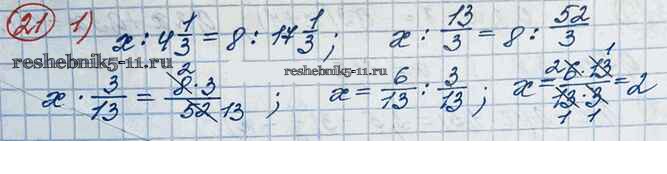 21 1) x : 4 1/3 = 8 : 17 1/3 ; x : 13/3 = 8 : 52/3
reshebnik5-11.ru reshebnik5-11.ru reshebnik5-11.ru
x · 3/13 = 8 2 · 3 / 52 13 ; x = 6/13 : 3/13 ; x = 2 6 · 13 1 / 13 1 · 3 1 = 2